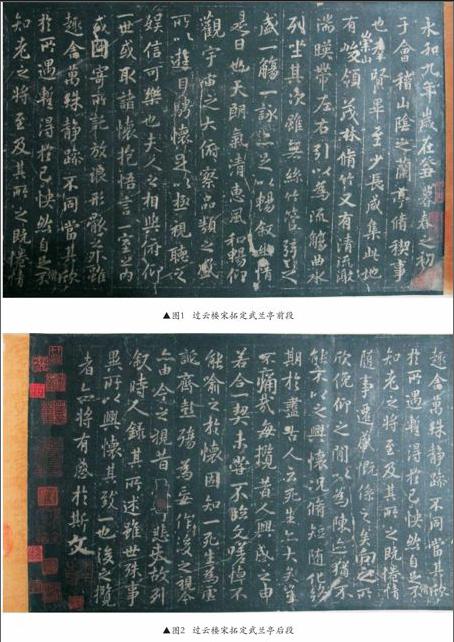 永和九年歲在癸丑暮春之初
于會稽山陰之蘭亭脩稧事
也羣賢畢至少長咸集此地
有崇山峻領茂林脩竹又有清流激
湍暎帶左右引以為流觴曲水
列坐其次雖無絲竹管弦之
盛一觴一詠亦足以暢叙幽情
是日也天朗氣清惠風和暢仰
觀宇宙之大俯察品類之盛
所以遊目騁懷足以極視聽之
娛信可樂也夫人之相與俯仰
一世或取諸懷抱悟言一室之內
或因寄所託放浪形骸之外雖
趣舍萬殊静躁不同當其欣
於所遇暫得於己怏然自足不
知老之將至及其所之既惓情
▲图1 过云楼宋拓定武兰亭前段
趣舍萬殊静躁不同當其欣
於所遇暫得於己怏然自足不
知老之將至及其所之既惓情
隨事遷感慨係之矣向之所
欣俛仰之閒以為陳迹猶不
能不以之興懷況脩短隨化終
期於盡古人云死生亦大矣豈
不痛哉每攬昔人興感之由
若合一契未嘗不臨文嗟悼不
能喻之於懷固知一死生為虛
誕齊彭殤為妄作後之視今
亦由今之視昔悲夫故列
叙時人錄其所述雖世殊事
異所以興懷其致一也後之攬
者亦將有感於斯文
▲图2 过云楼宋拓定武兰亭后段